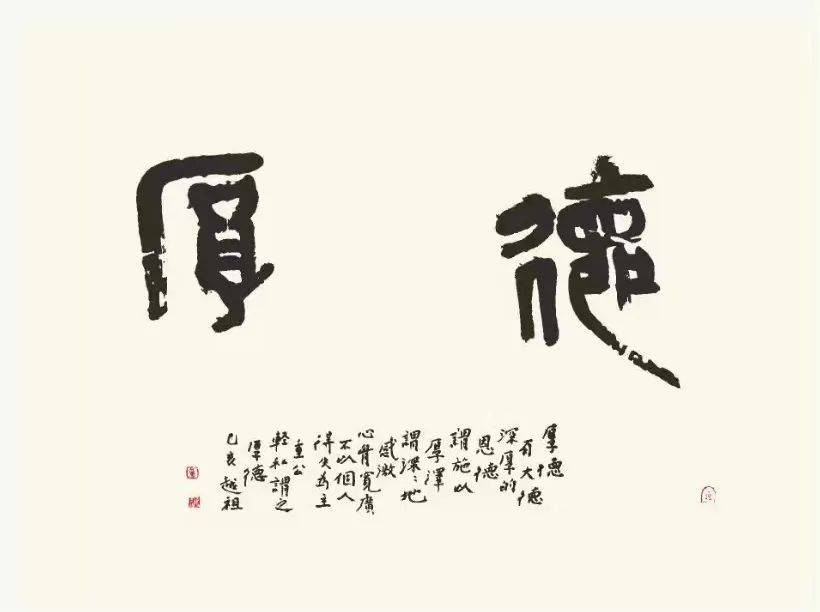 厚德
厚德
有大德
深厚的
恩德
謂施以
厚澤
謂深々地
感激
心胷寬廣
不以個人
得失為主
重公
輕私謂之
厚德
己亥越祖